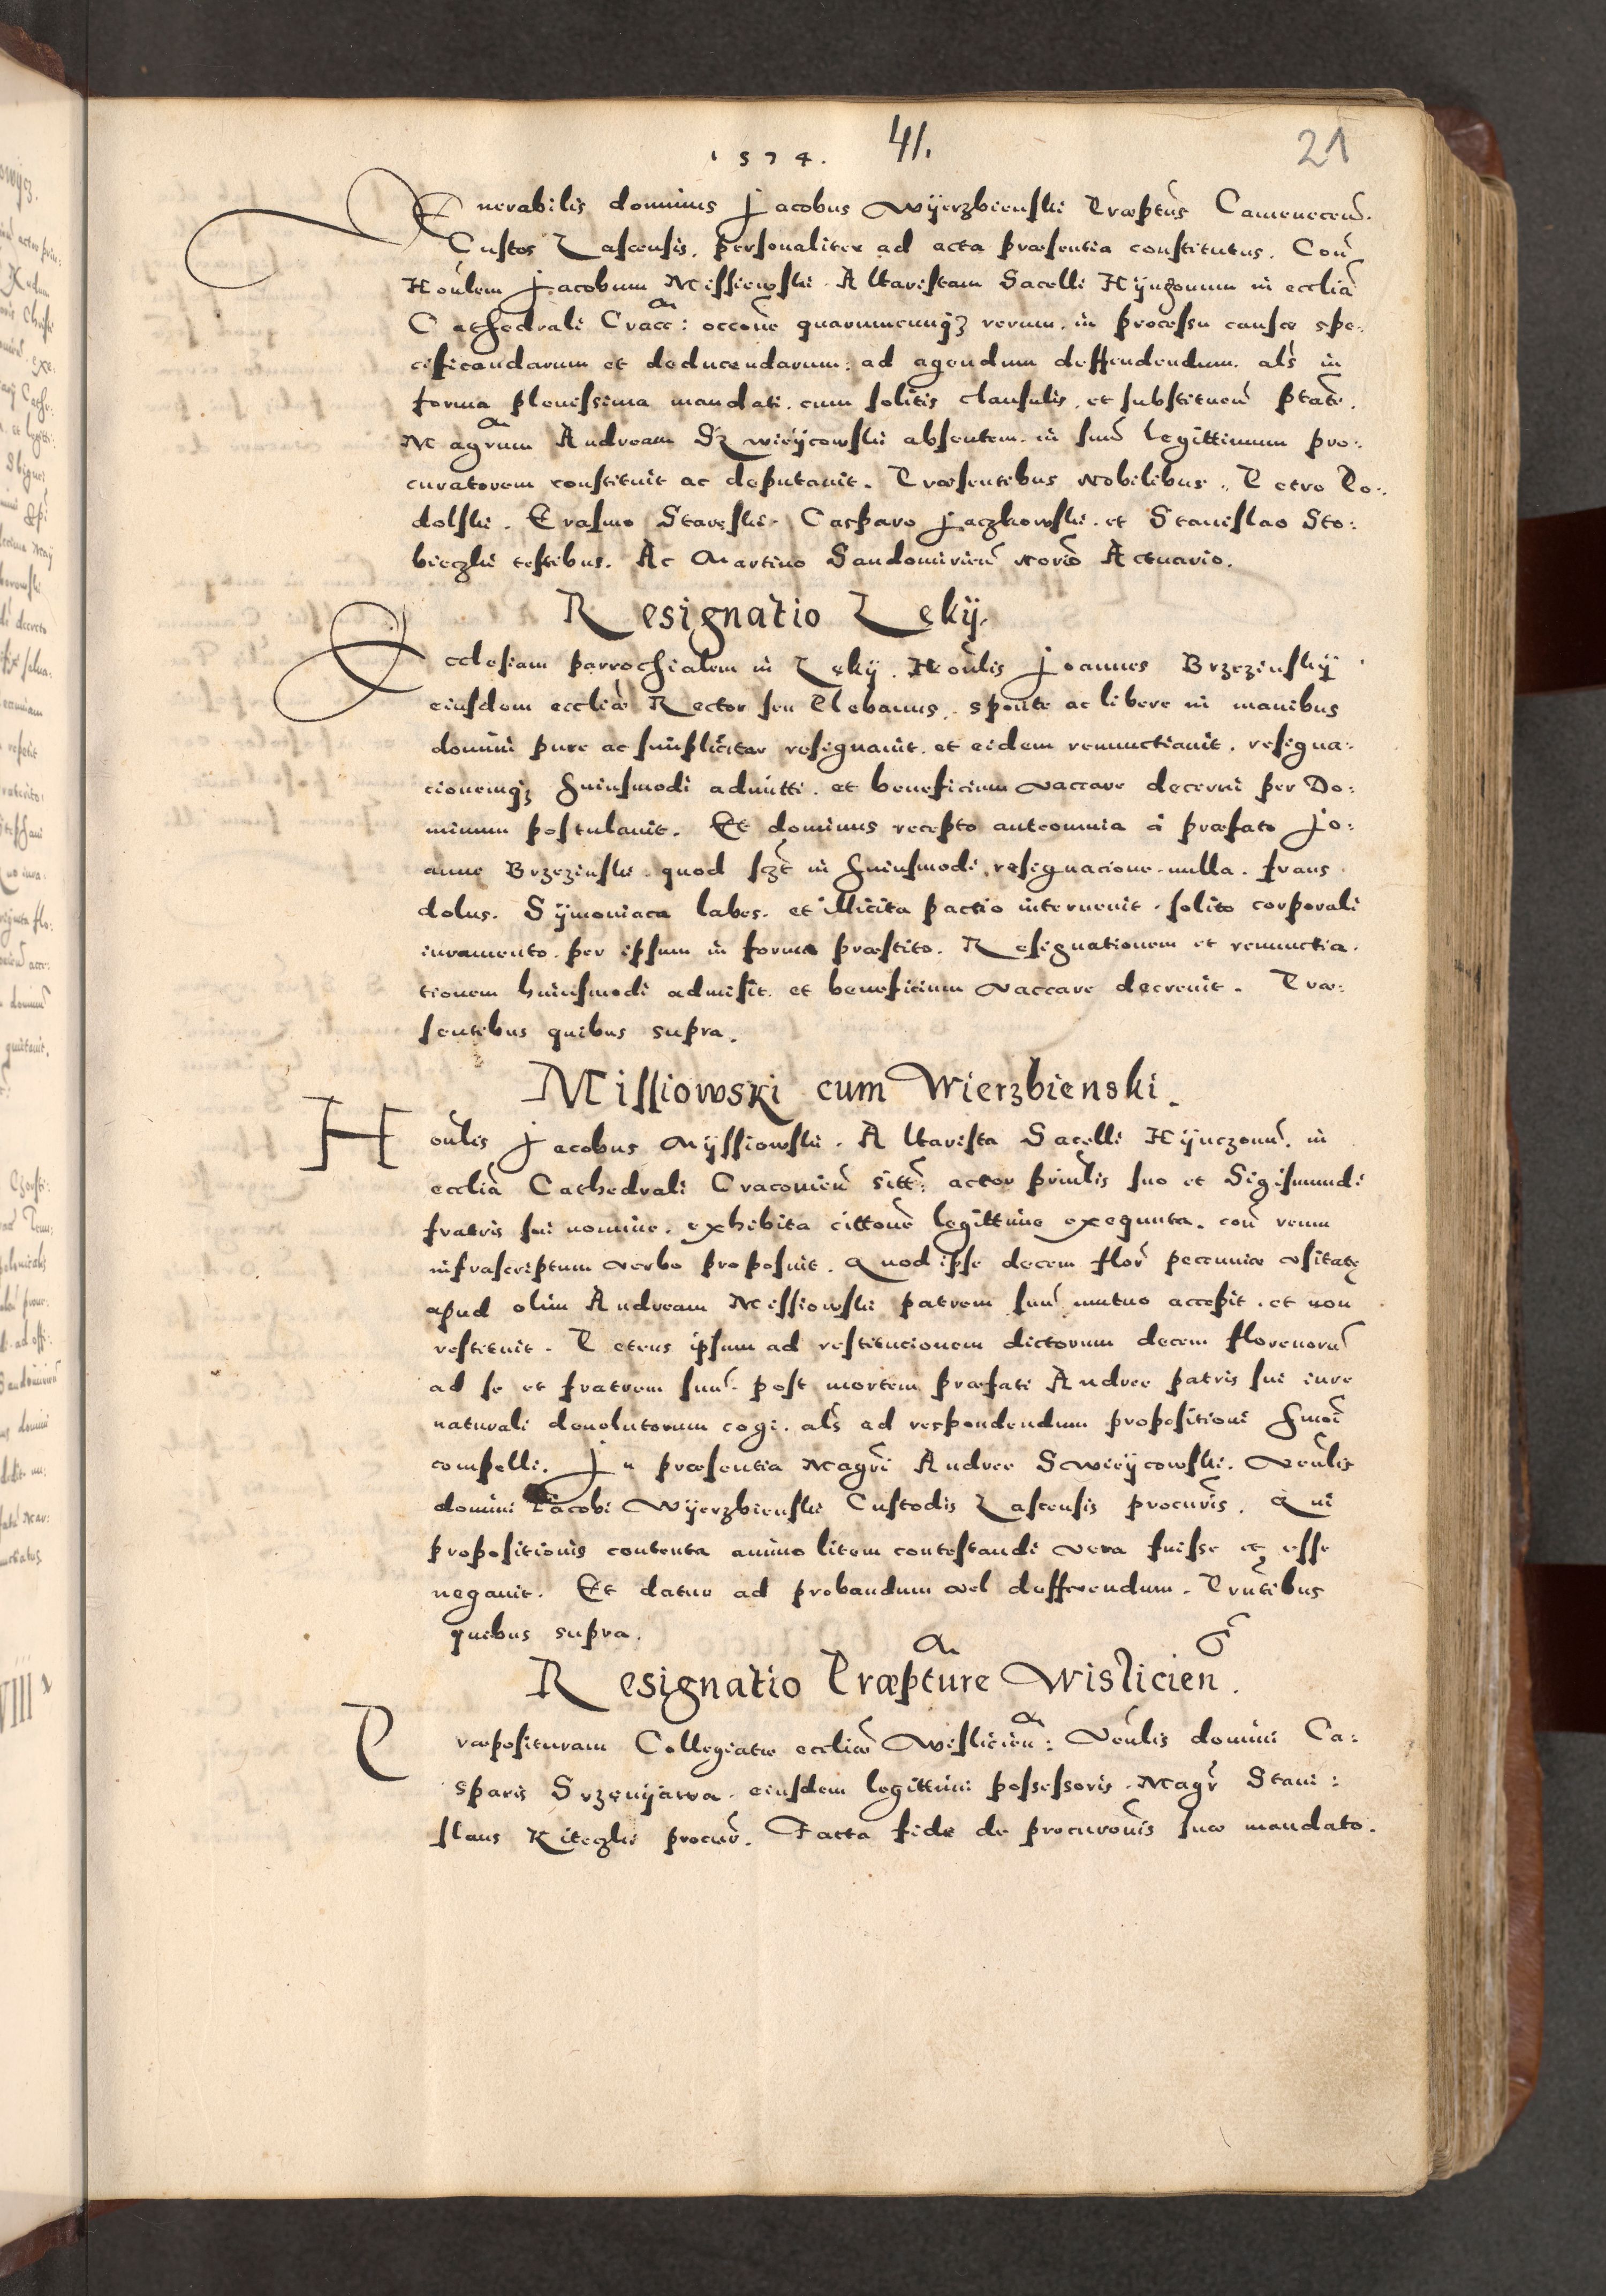 1574. 41. 21
Venerabilis dominus Jacobus Wyerzbienski Præptus Camenecen.
Custos Lascensis, personaliter ad acta præsentia constitutus. Con
Honlem Jacobum Missiewski Altaristam Sacelli Hynczonum in ecclia
Cathedrali Cracc: occone quarumcunqz rerum in processu causæ spe:
cificandarum et deducendarum: ad agendum deffendendum als in
forma plenissima mandati cum solitis clausulis et substituen ptate.
Magrum Andream Swieycowski absentem in suu legittimum pro:
curatorem constituit ac deputauit. Præsentibus Nobilibus Petro Po:
dolski. Erasmo Stareski Casparo Jaczkowski et Stanislao Sto:
bieczki testibus. Ac Martino Sandomirien norio Actuario.
Resignatio Lęky.
Ecclesiam parrochialem in Lęky. Honlis Joannes Brzezinsky
eiusdem eccliæ Rector seu Plebanus, sponte ac libere in manibus
domini pure ac simpliciter resignauit et eidem renunctiauit, resigna:
cionemqz huiusmodi admitti et beneficium vaccare decerni per Do:
minum postulauit. Et dominus recepto anteomnia à præfato Jo:
anne Brzezinski quod sczt in huiusmodi resignacione nulla fraus
dolus. Symoniaca labes. et illicita pactio interuenit solito corporali
iuramento per ipsum in forma præstito. Resignationem et renunctia
tionem huiusmodi admisit et beneficium vaccare decreuit. Præ:
sentibus quibus supra.
Missiowski cum Wierzbienski.
Honlis Jacobus Myssiowski Altarista Sacelli Hynczonu in
ecclia Cathedrali Cracouien sitt: actor prinlis suo et Sigismundi
fratris sui nomine. exhibita cittone legittime exequuta. con reum
infrascriptum verbo proposuit. Quod ipse decem flor pecuniæ vsitatę
apud olim Andream Missiowski patrem suu mutuo accepit et non
restituit. Petens ipsum ad restitucionem dictorum decem florenoru
ad se et fratrem suu post mortem præfati Andree patris sui iure
naturali deuolutorum cogi. als ad respondendum propositioni hmoi
compelli. In præsentia Magri Andree Swieycowski. Venlis
domini Jacobi Wyerzbienski Custodis Lascensis procuris. Qui
propositionis contenta animo litem contestandi vera fuisse et esse
negauit. Et datur ad probandum vel defferendum. Prntibus
quibus supra.
Resignatio Præpture Wislicien.
Præposituram Collegiatæ eccliæ Wislicien: Venlis domini Ca:
sparis Srzenyawa eiusdem legittimi possessoris Magr Stani:
slaus Kiteczki procur. Facta fide de procuronis suæ mandato.